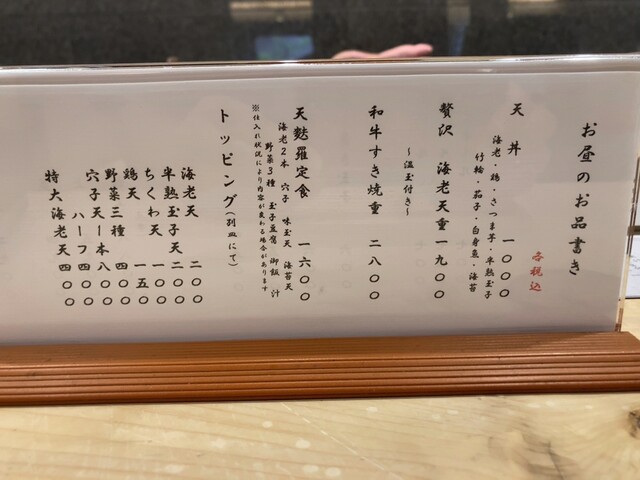 お昼のお品書き
各税込
天丼 一〇〇〇
海老・鶏・さつま芋・半熟玉子
竹輪・茄子・白身魚・海苔
贅沢 海老天重 一九〇〇
和牛すき焼重 二八〇〇
~温玉付き~
天麩羅定食 一六〇〇
海老2本 穴子 味玉天 海苔天
野菜3種 玉子豆腐 御飯 汁
※仕入れ状況により内容が変わる場合があります
トッピング(別皿にて)
海老天 二〇〇
半熟玉子天 二〇〇
ちくわ天 一〇〇
鶏天 一五〇
野菜三種 四〇〇
穴子天一本 八〇〇
ハーフ 四〇〇
特大海老天 四〇〇